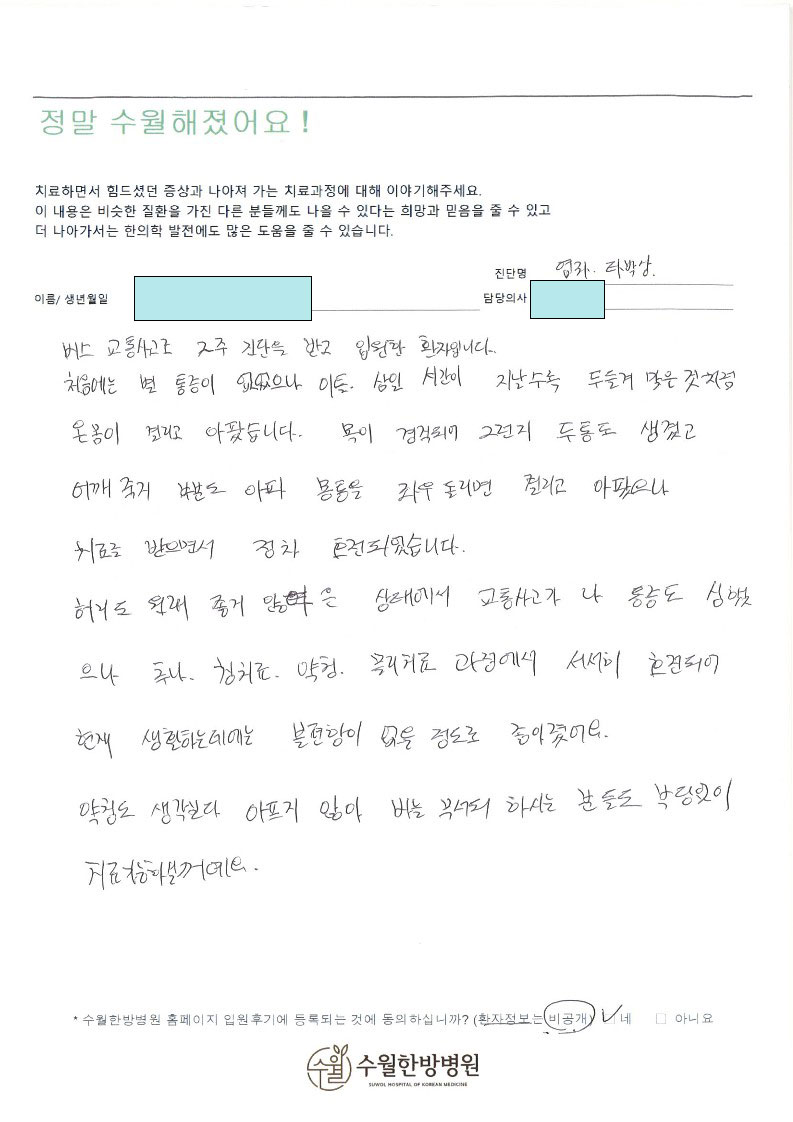 정말 수월해졌어요!
치료하면서 힘드셨던 증상과 나아져 가는 치료과정에 대해 이야기해주세요.
이 내용은 비슷한 질환을 가진 다른 분들께도 나을 수 있다는 희망과 믿음을 줄 수 있고
더 나아가서는 한의학 발전에도 많은 도움을 줄 수 있습니다.
진단명 염좌. 타박상.
이름/ 생년월일 담당의사
버스 교통사고로 2주 진단을 받고 입원한 환자입니다.
처음에는 별 통증이 없었으나 이틀. 삼일 시간이 지날수록 두들겨 맞은 것처럼
온몸이 결리고 아팠습니다. 목이 경직되어 그런지 두통도 생겼고
어깨 죽지 부분도 아파 몸통을 좌우 돌리면 결리고 아팠으나
치료를 받으면서 점차 호전되었습니다.
허리도 원래 좋지 않은 상태에서 교통사고가 나 통증도 심했
으나 추나. 침치료. 약침. 물리치료 과정에서 서서히 호전되어
현재 생활하는데에는 불편함이 없을 정도로 좋아졌어요.
약침도 생각보다 아프지 않아 하시는 분들도 부담없이
* 수월한방병원 홈페이지 입원후기에 등록되는 것에 동의하십니까? (환자정보는 비공개) □ 네 □ 아니요
수월 수월한방병원
SUWOL HOSPITAL OF KOREAN MEDICINE